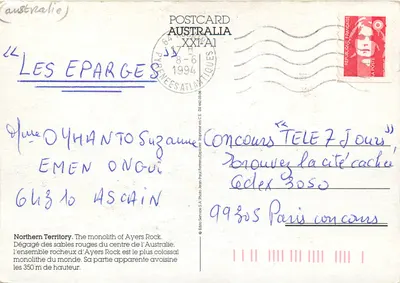 (australie)
POSTCARD
AUSTRALIA
XXI-A1
8-6
1994
PYRENEES ATLANTIQUES
"LES EPARGES"
Mme OYHANTO Suzanne
EMEN ONGUI
64310 ASCAIN
Concours "TELE 7 Jours"
Trouver la cité cachée
Cedex 3050
99305 Paris concours
Northern Territory. The monolith of Ayers Rock.
Dégagé des sables rouges du centre de l'Australie,
l'ensemble rocheux d'Ayers Rock est le plus colossal
monolithe du monde. Sa partie apparente avoisine
les 350 m de hauteur.